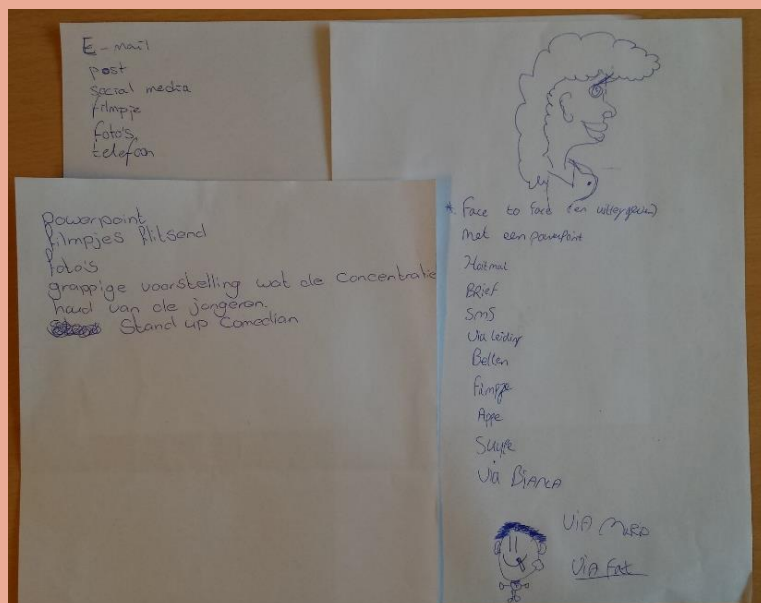 E-mail
post
social media
filmpje
foto's
telefoon
powerpoint
filmpjes flitsend
foto's
grappige voorstelling wat de concentratie
houd van de jongeren.
Stand up Comedian
Face to face (en uitleg geven)
met een powerpoint
Hotmail
BRief
SMS
via leiding
Bellen
Filmpje
Appe
Skype
via BiANCA
ViA
ViA